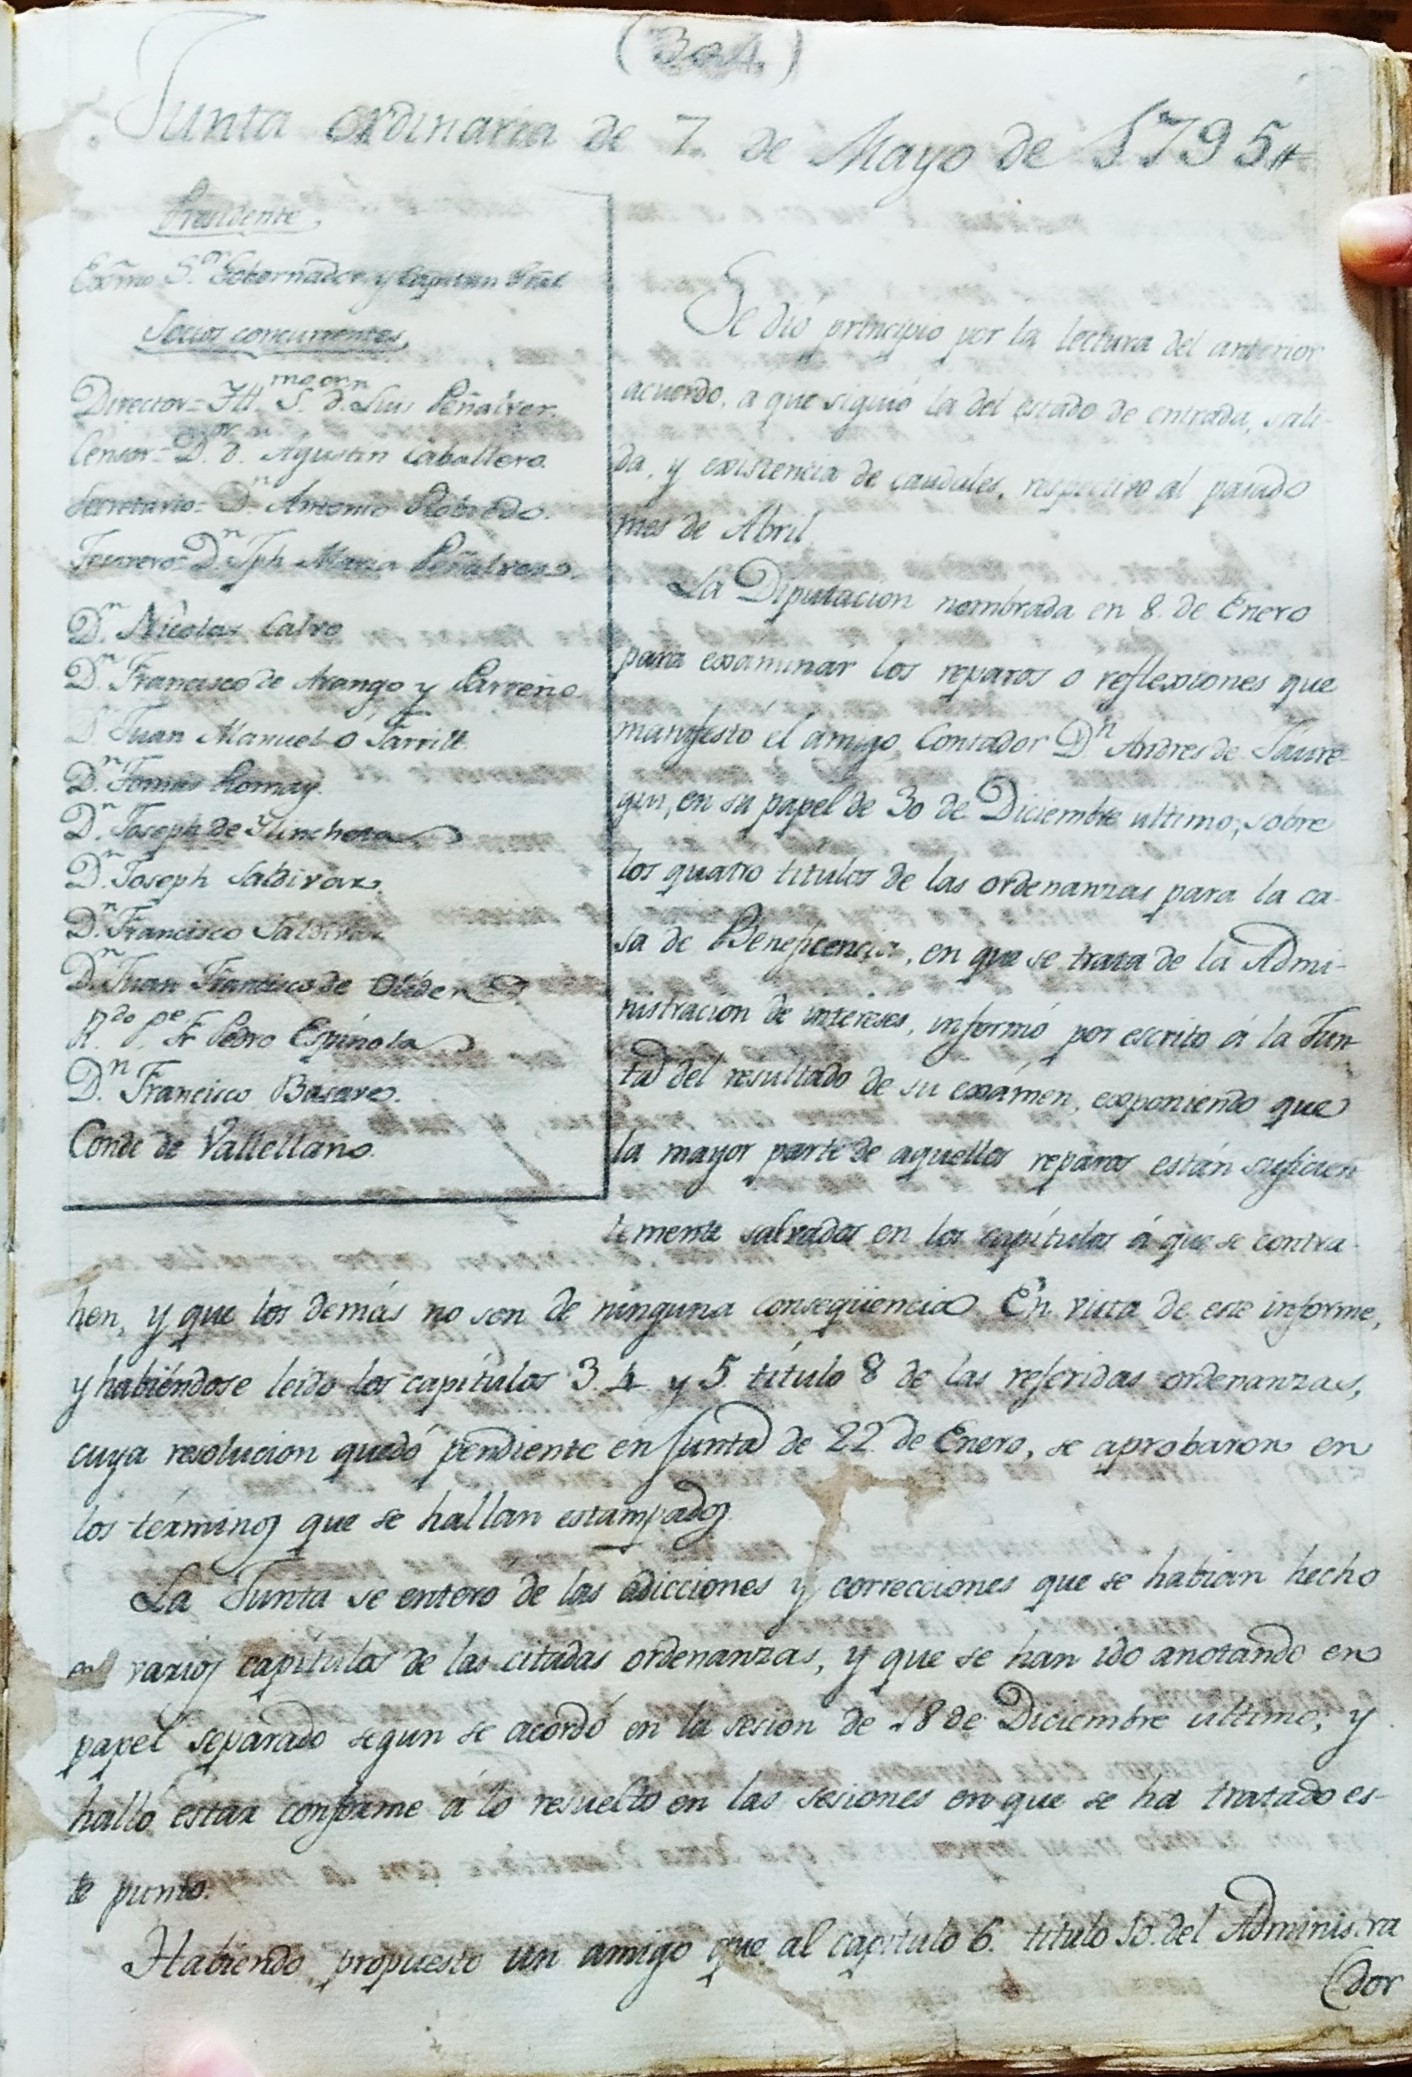 (304)
Junta ordinaria de 7. de Mayo de 1795 #
Presidente,
Exmo S.ʳ Gobernador y Capitan Gral.
Socios concurrentes,
Director = Ill.ᵐᵒ S.ᵒʳ d.ⁿ Luis Peñalver.
Censor = D.ᵒʳ d.ⁿ Agustin Caballero.
Secretario = D.ⁿ Antonio Robredo.
Tesorero = D.ⁿ Jph Maria Peñalver.
D.ⁿ Nicolas Calvo
D.ⁿ Francisco de Arango y Parreño
D.ⁿ Juan Manuel O Farrill.
D.ⁿ Tomas Romay.
D.ⁿ Joseph de Ilincheta
D.ⁿ Joseph Saldivar.
D.ⁿ Francisco Saldivar
D.ⁿ Juan Francisco de Oliden
R.ᵈᵒ P.ᵉ Fr Pedro Espinola
D.ⁿ Francisco Basave.
Conde de Vallellano.
Se dió principio por la lectura del anterior
acuerdo, a que siguió la del estado de entrada, sali-
da, y existencia de caudales, respectivo al pasado
mes de Abril
La Diputacion nombrada en 8. de Enero
para examinar los reparos o reflexiones que
manifestó el amigo Contador D.ⁿ Andres de Jaure-
gui, en su papel de 30 de Diciembre ultimo, sobre
los quatro titulos de las ordenanzas para la ca-
sa de Beneficencia, en que se trata de la Admi-
nistracion de intereses, informó por escrito á la Jun-
ta del resultado de su exámen, exponiendo que
la mayor parte de aquellos reparos están suficien
temente salvados en los capítulos á que se contra-
hen, y que los demás no son de ninguna conseqüencia En vista de este informe,
y habiéndose leido los capítulos 3. 4. y 5. título 8 de las referidas ordenanzas,
cuya resolucion quedó pendiente en Junta de 22 de Enero, se aprobaron en
los términos que se hallan estampados
La Junta se enteró de las adicciones y correcciones que se habian hecho
en varios capítulos de las citadas ordenanzas, y que se han ido anotando en
papel separado segun se acordó en la sesion de 18 de Diciembre ultimo; y
halló estar conforme á lo resuelto en las sesiones en que se ha tratado es-
te punto.
Habiendo propuesto un amigo que al capítulo 6. título 10. del Administra
(dor